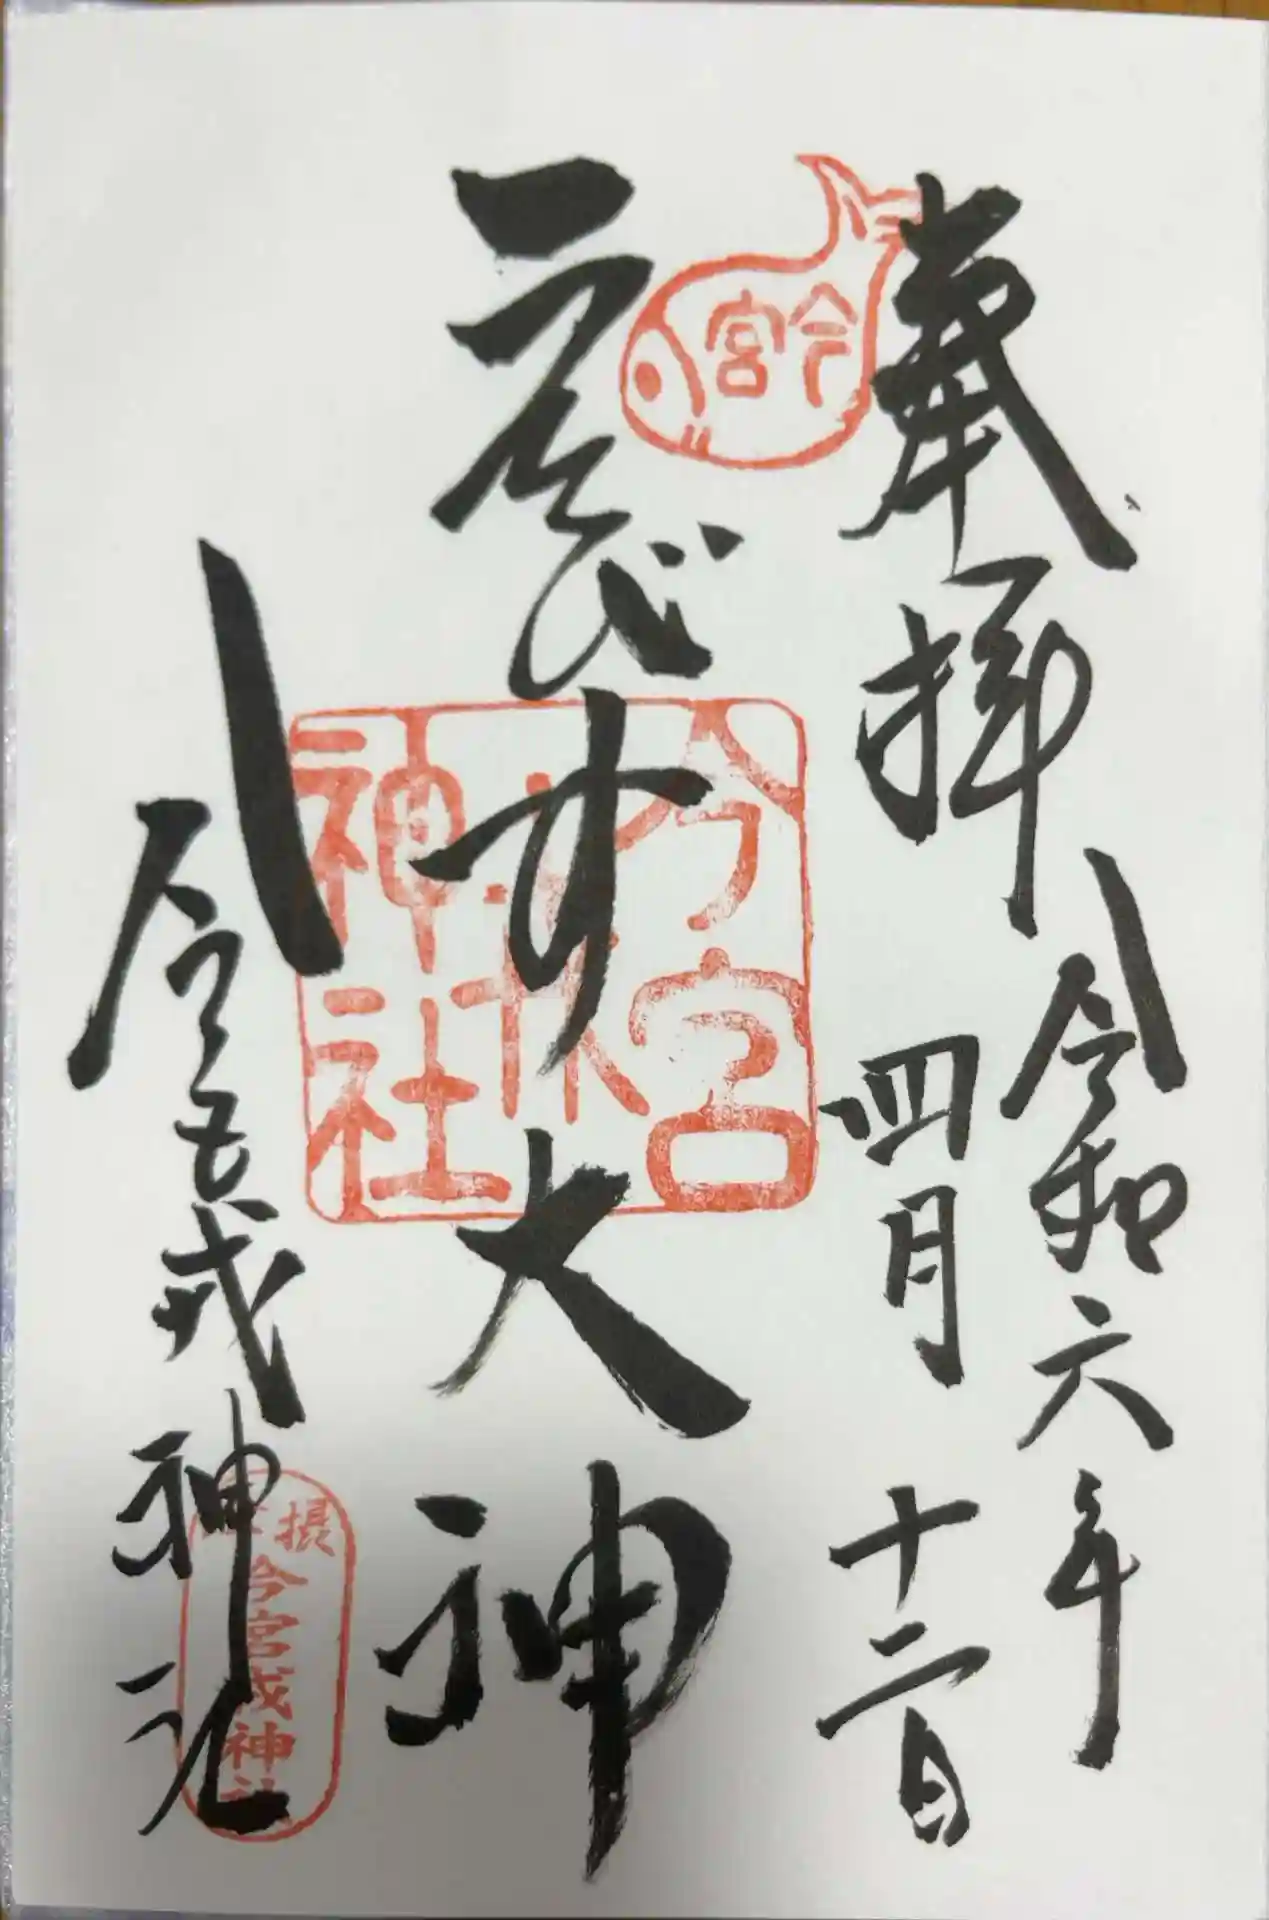 奉拝
令和六年
四月十二日
ゑびす大神
今宮戎神社
今宮
今宮
神社
摂
今宮戎神社